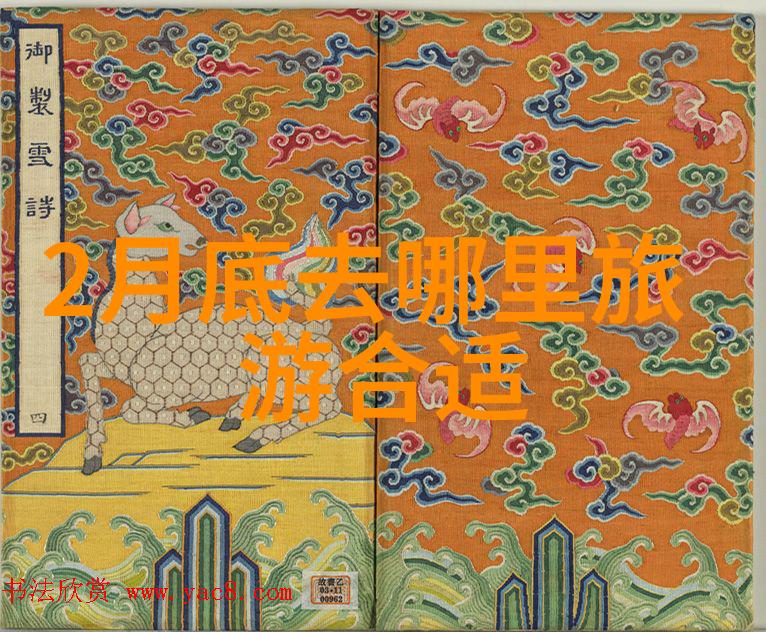 御製雪詩
四
2月底去哪里旅
游合适
书法欣赏 www.yac8.com
故書乙
03•11
00962